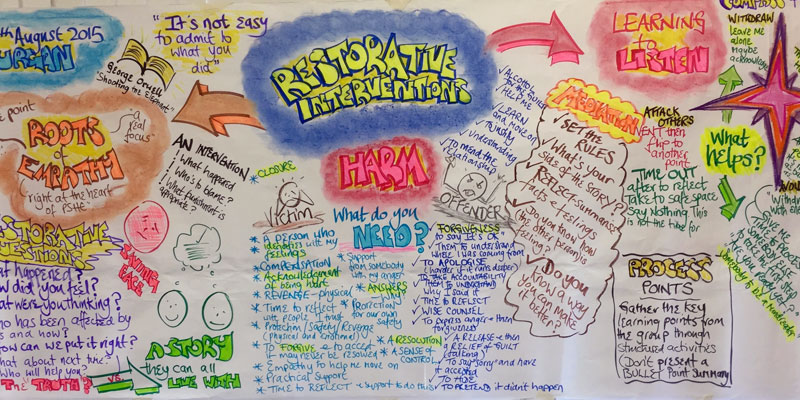 th August 2015
URGAN
"It's not easy
to admit to
what you
did"
George Orwell
"Shooting the Elephant"
RESTORATIVE
INTERVENTIONS
LEARNING
to
LISTEN
WITHDRAW
leave me
alone
Maybe
acknowledge
point
"a real
focus"
ROOTS
of
EMPATHY
right at the heart
of PSHE
AN INTERVENTION
What happened
Who's to blame?
What punishment is
appropriate?
* CLOSURE
HARM
Victim
OFFENDER
What do you
NEED?
✓ LEARN
and move on
✓ Understanding
✓ To mend the
relationship
MEDIATION
✓ SET the
RULES
✓ What's your
side of the story?
REFLECT Summarise
facts & feelings
✓ Do you know how
the other person is
feeling?
✓ Do you
know a way
you can make
it better?
ATTACK
OTHERS
VENT then
flip to
another
point
TIME OUT
after to reflect
Take to safe space
Say Nothing This
is not the time for
What
helps?
RESTORATIVE
QUESTIONS
What happened?
How did you feel?
What were you thinking?
Who has been affected by
this and how?
How can we put it right?
What about next time?
Who will help you?
The TRUTH?
vs.
SAVING
FACE
A STORY
they can all
LIVE WITH
* A person who
identifies with my
feelings
* COMPENSATION
* Acknowledgement
of being hurt
* REVENGE - physical
* Time to reflect
with people I trust
* Protection/Safety/Revenge
(physical and emotional)
* To FORGIVE or to accept
it may never be resolved
* Empathy to help me move on
* Practical Support
* TIME to REFLECT + support to do this
* Support
from somebody
with my anger
* ANSWERS
Why?
* Protection
for our own
safety
* A RESOLUTION
* A SENSE of
CONTROL
FORGIVENESS
to say It's OK
✓ Them to understand
where I was coming from
✓ To APOLOGISE
(harder if it runs deeper)
✓ TAKE ACCOUNTABILITY
✓ THEM to UNDERSTAND
why I said it
✓ TIME to REFLECT
✓ WISE COUNSEL
✓ To express anger & then
forgiveness
✓ A RELEASE & then
a RELIEF of GUILT
(talking)
✓ To say "Sorry" and have
it accepted
✓ TO HIDE
✓ TO PRETEND it didn't happen
PROCESS
POINTS
Gather the key
learning points from
the group through
structured activities
(Don't present a
BULLET Point Summary